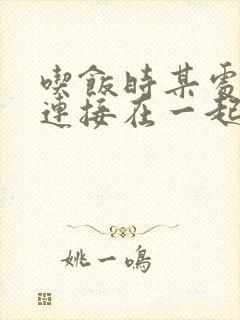 喫飯時某處
連接在一起
姚一鳴